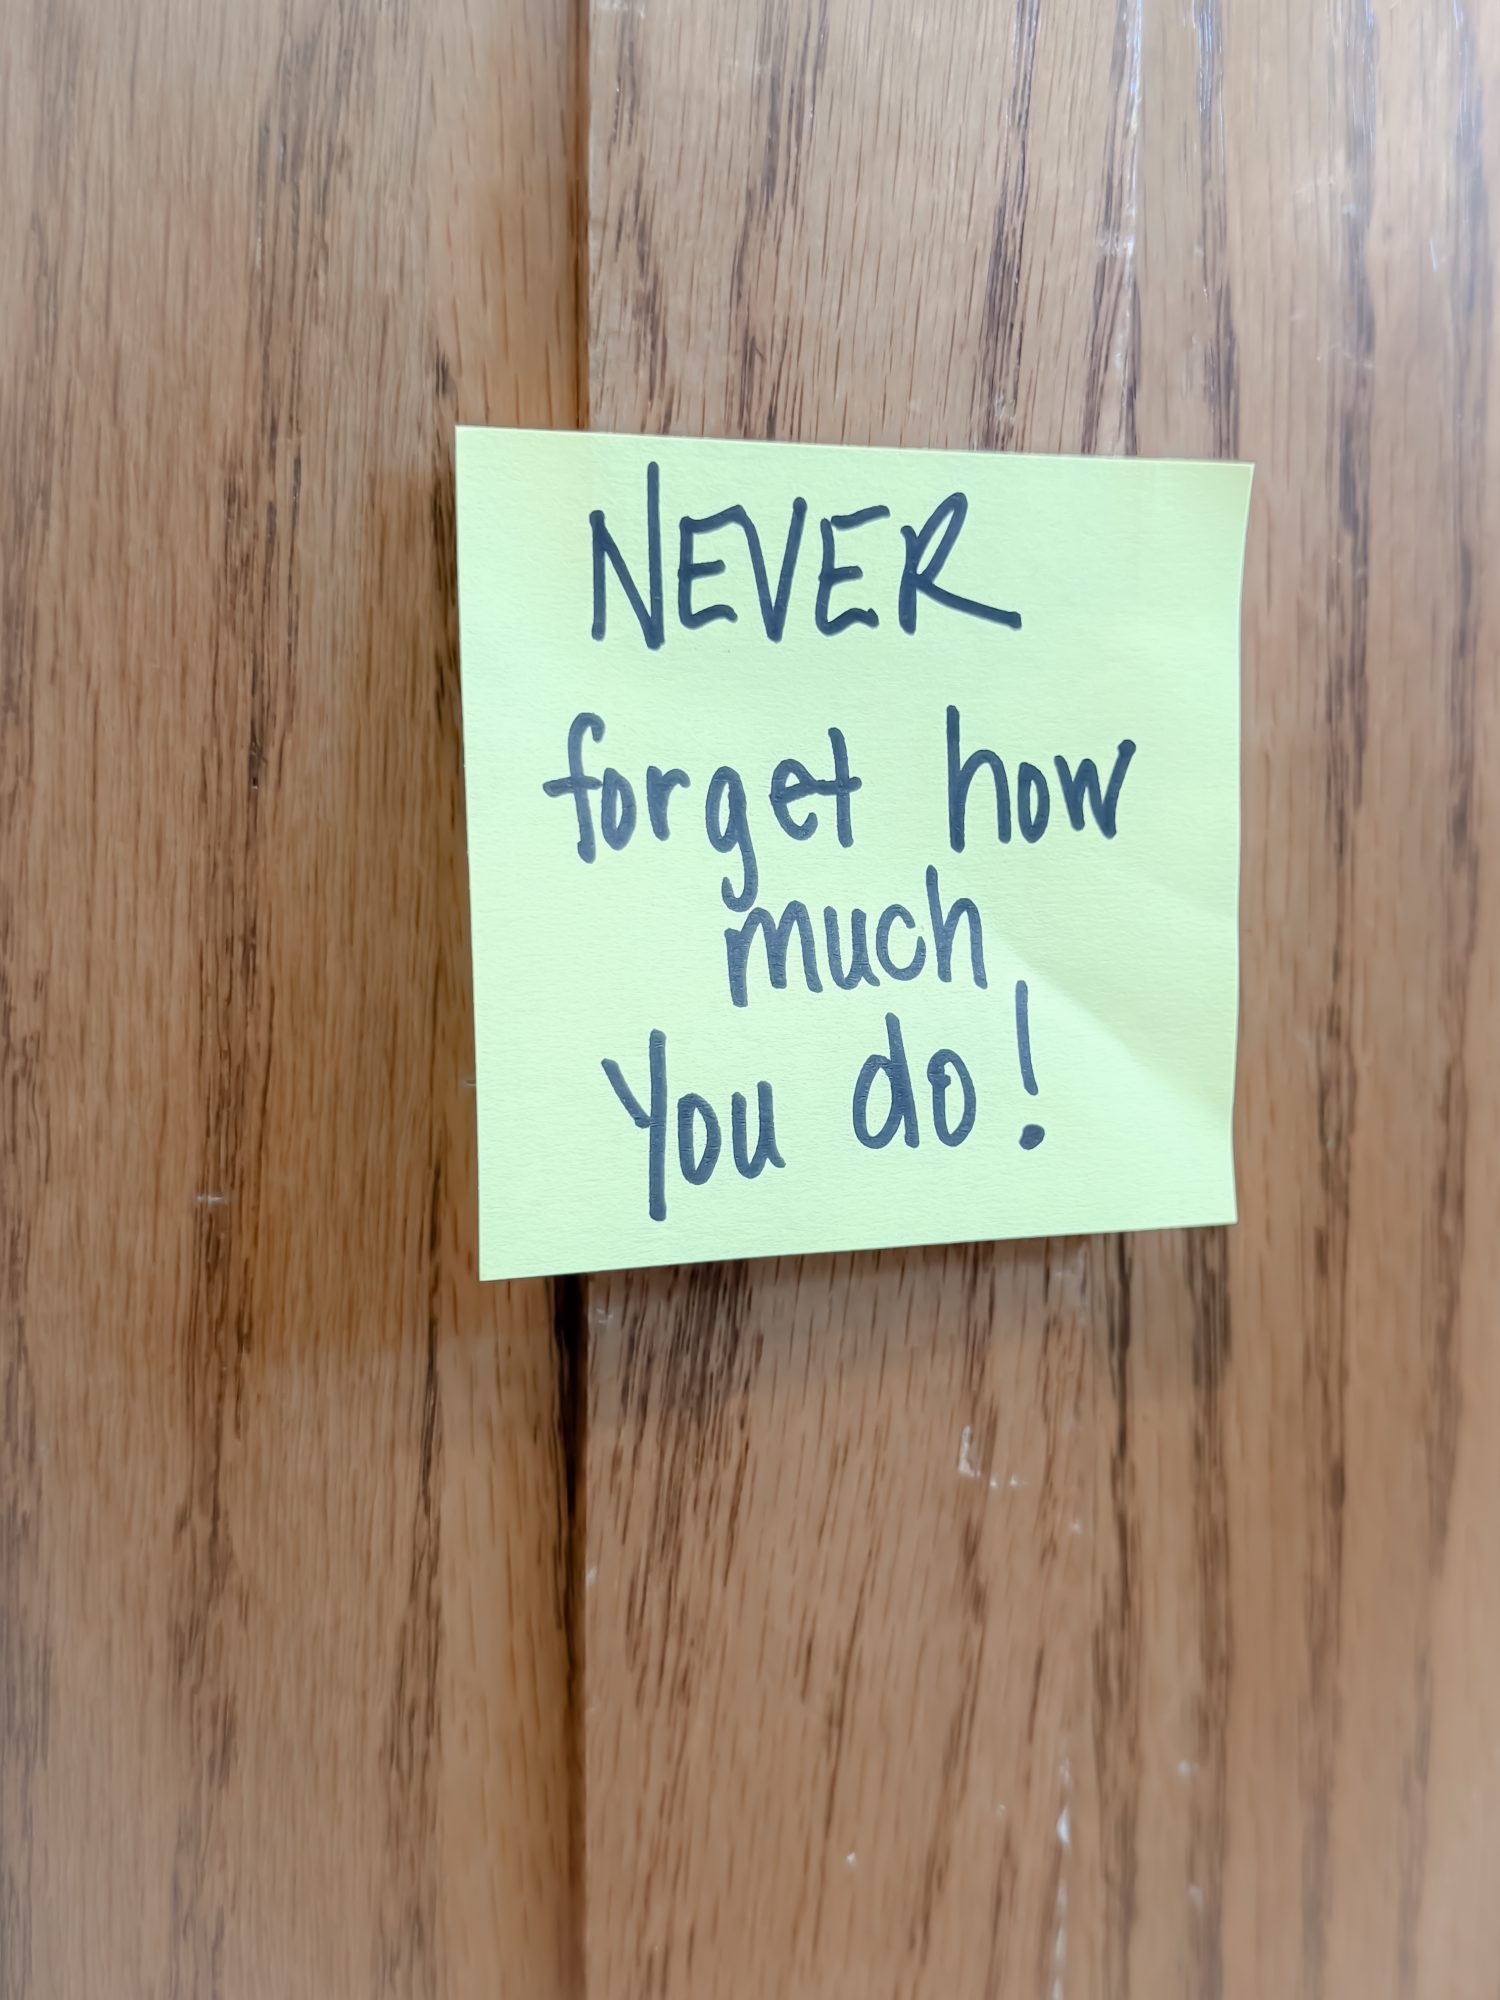 NEVER
forget how
much
you do!